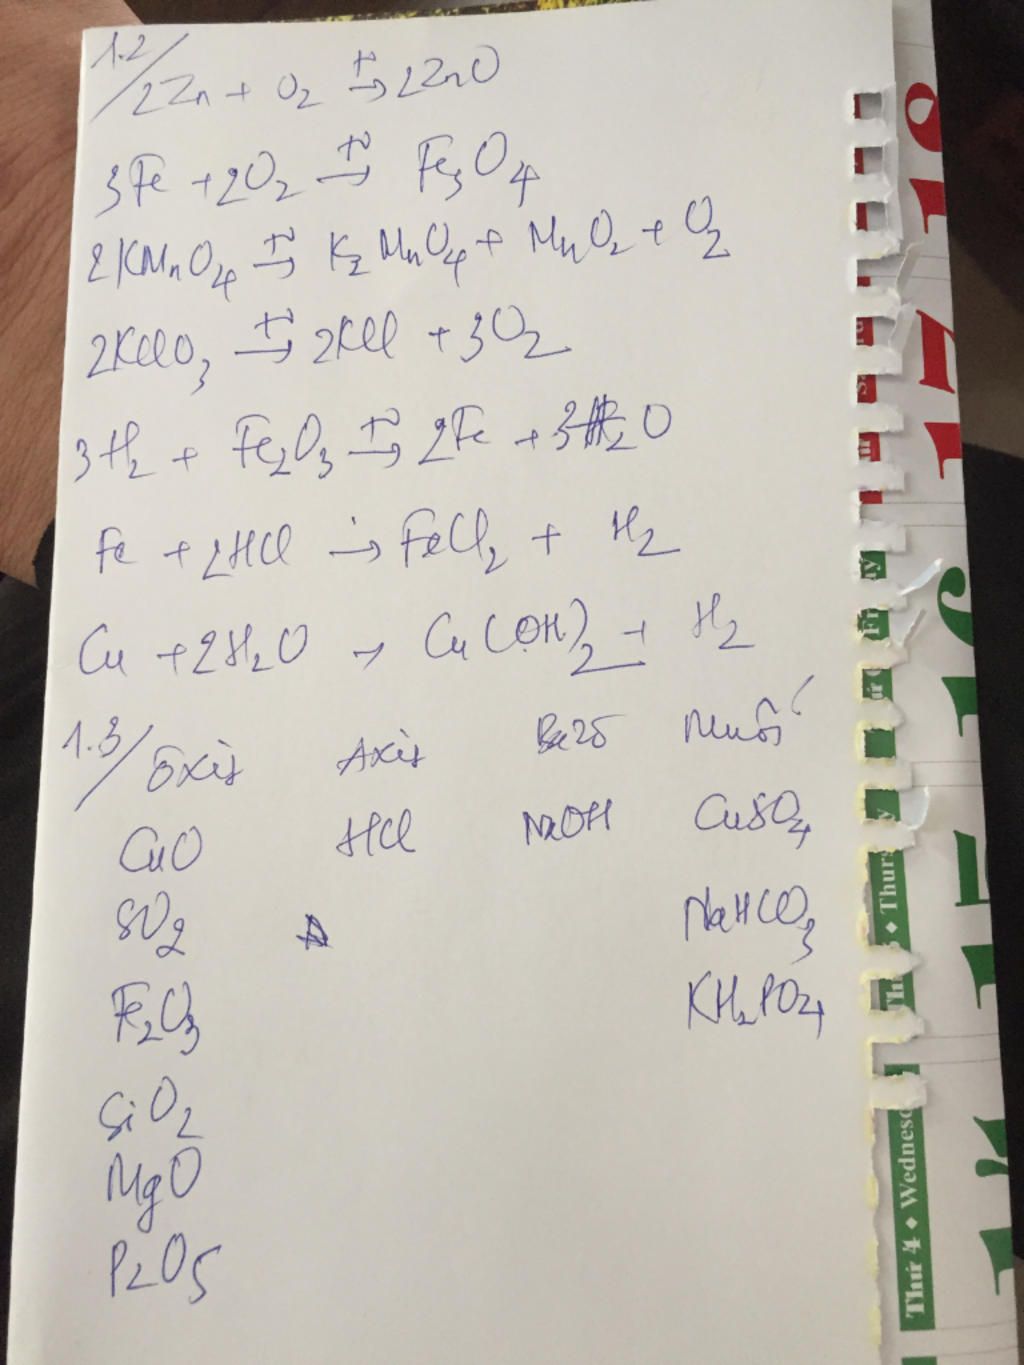 1.2/ 2Zn + O2 t°→ 2ZnO
3Fe + 2O2 t°→ Fe3O4
2KMnO4 t°→ K2MnO4 + MnO2 + O2
2KClO3 t°→ 2KCl + 3O2
3H2 + Fe2O3 t°→ 2Fe + 3H2O
Fe + 2HCl → FeCl2 + H2
Cu + 2H2O → Cu(OH)2 + H2
1.3/ Oxit Axit Bazơ Muối
CuO HCl NaOH CuSO4
SO2 NaHCO3
Fe2O3 KH2PO4
SiO2
MgO
P2O5
Thứ 4 ♦ Wednesd
♦ Thurs